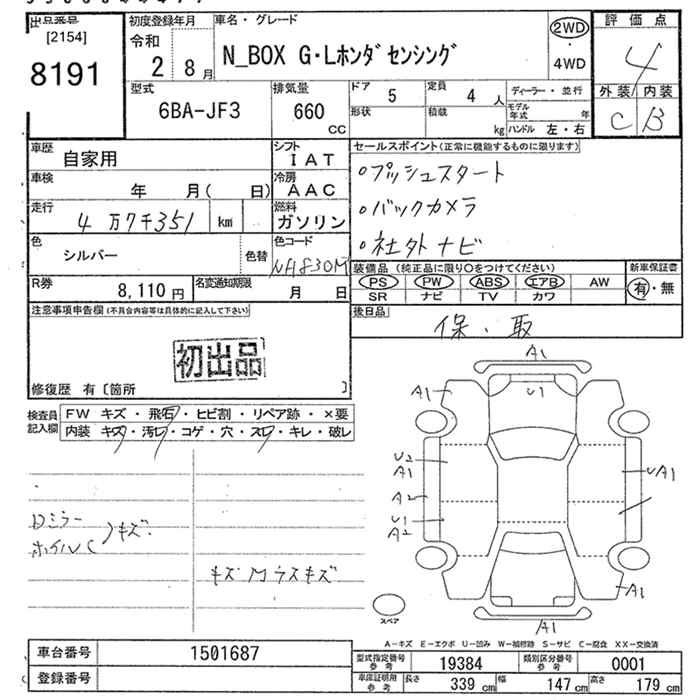 出品番号
[2154]
8191
初度登録年月
令和
2 8月
車名・グレード
N_BOX G・Lホンダセンシング
2WD
・
4WD
評価点
4
外装 内装
C B
型式
6BA-JF3
排気量
660
cc
ドア 5
形状
定員 4 人
積載 kg
ディーラー・並行
モデル年式 年
ハンドル 左・右
車歴 自家用
シフト IAT
車検 年 月( 日)
冷房 AAC
走行 4万7千351 km
燃料 ガソリン
色 シルバー
色替
色コード NH830M
R券 8,110円
名変通知期限 月 日
セールスポイント(正常に機能するものに限ります)
○プッシュスタート
○バックカメラ
○社外ナビ
装備品 (純正品に限り○をつけてください)
PS PW ABS エアB AW
SR ナビ TV カワ
新車保証書
有・無
後日品
保・取
注意事項申告欄 (不具合内容等は具体的に記入して下さい)
初出品
修復歴 有〔箇所 〕
検査員記入欄
FW キズ・飛石・ヒビ割・リペア跡・×要
内装 キズ・汚レ・コゲ・穴・スレ・キレ・破レ
Dミラー
ホイルC
キズ
キズMラスキズ
A1
A1
U1
U2
A1
A2
U1
A2
UA1
A1
A1
スペア
A-キズ E-エクボ U-凹み W-補修跡 S-サビ C-腐食 XX-交換済
車台番号 1501687
登録番号
型式指定番号 参考 19384
類別区分番号 参考 0001
車庫証明用 参考 長さ 339 cm 幅 147 cm 高さ 179 cm